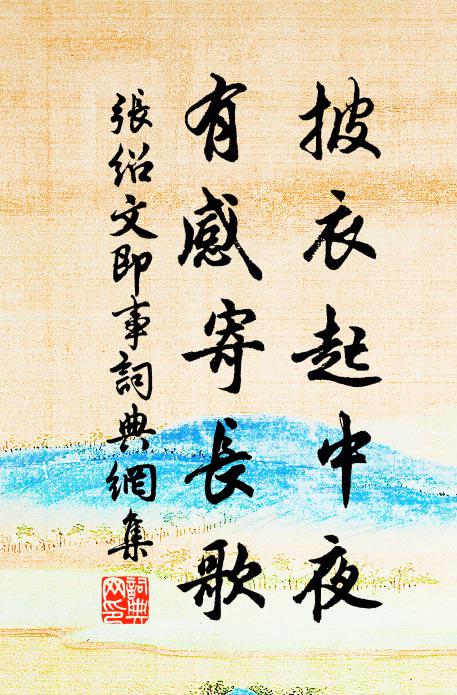 披衣起中夜
有感寄長歌
張紹文即事詞典網集
詞典
文印